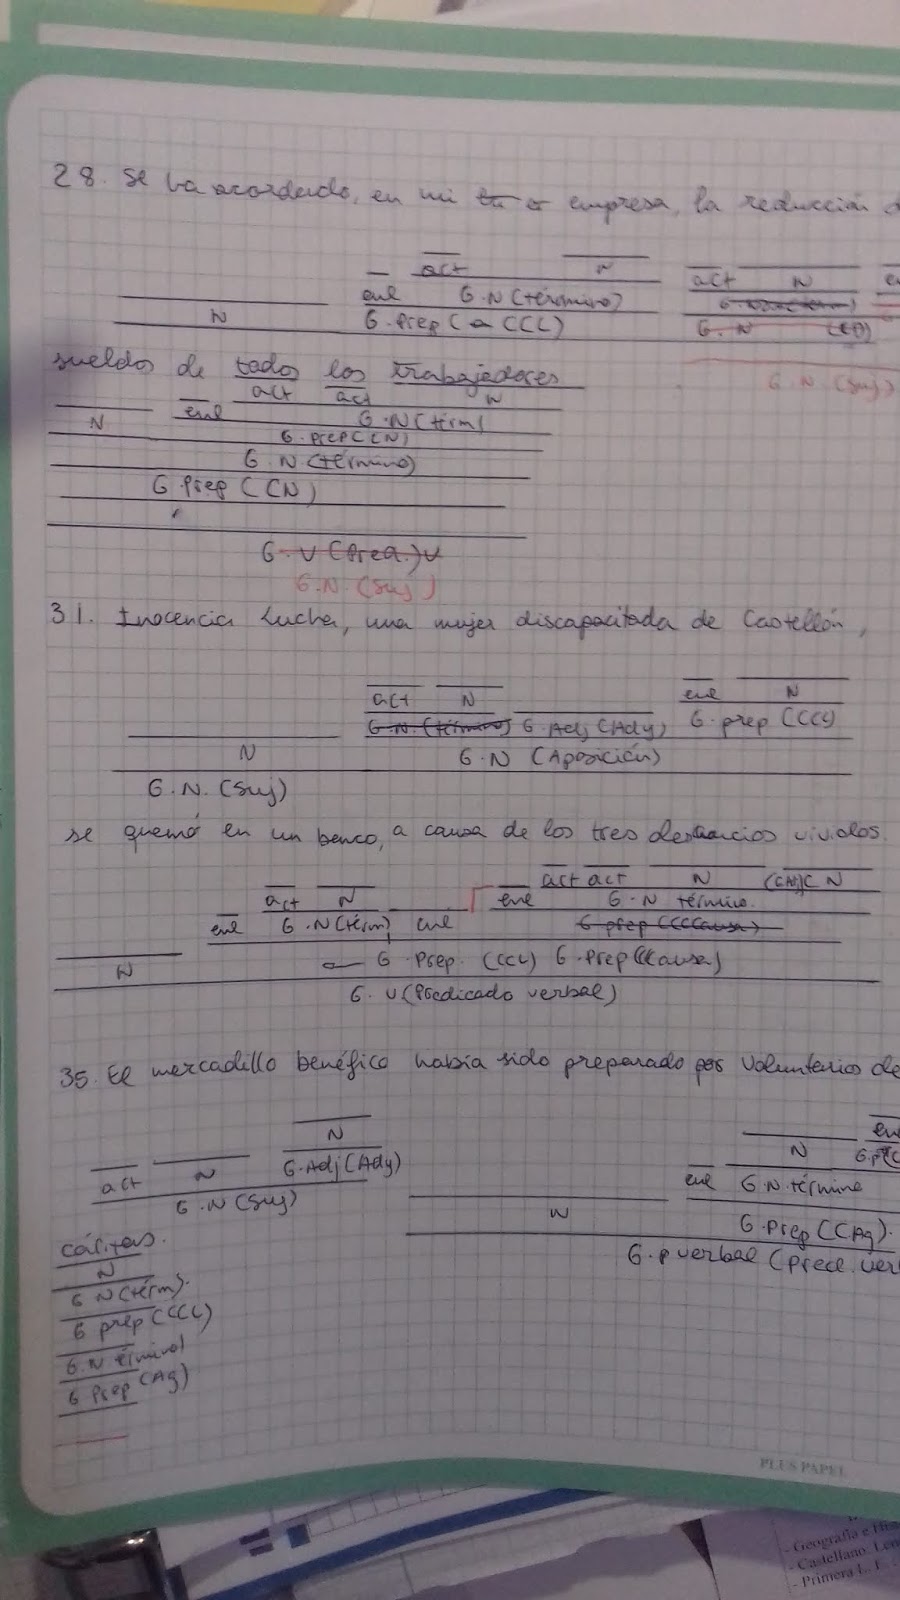 28. Se ha acordado, en mi empresa, la reducción d
act N act N en
enl G.N(término)
N G.Prep (CCL) G.N (CD)
sueldos de todos los trabajadores G.N.(Suj)
act act N
N enl G.N(térm)
G.Prep(CN)
G.N(término)
G Prep (CN)
G.V (Pred.)V
G.N.(Suj)
31. Inocencia Lucha, una mujer discapacitada de Castellón,
act N enl N
G.N.(término) G.Adj(Ady) G.prep (CCL)
N G.N (Aposición)
G.N.(Suj)
se quemó en un banco, a causa de los tres desahucios vividos.
act N act act N (CAdj)CN
enl G.N(térm) enl enl G.N término.
G prep (CCCausa)
N G.Prep. (CCL) G.Prep(CCausa)
G.V(Predicado verbal)
35. El mercadillo benéfico había sido preparado por voluntarios de
N en
act N G.Adj(Ady) N
G.N(Suj) enl G.N.término
N G.Prep(CAg).
Cáritas. G.P verbal (Pred.ver
N
G N(térm).
G prep(CCL)
G.N término)
G Prep (Ag)
PLUS PAPEL
- Geografía e Hi
- Castellano: Len
- Primera L. E.